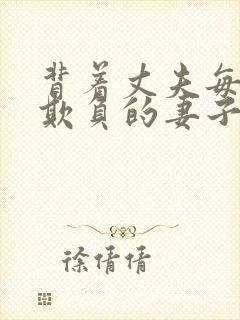 背着丈夫每
欺负的妻子
徐倩倩